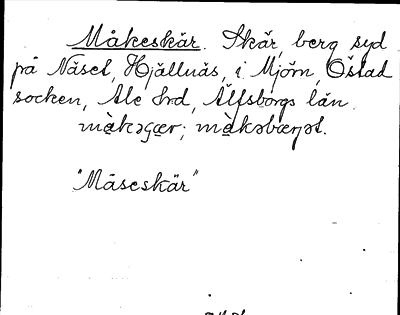 Måkeskär. Skär, berg syd
på Näset, Hjällnäs, i Mjörn, Östad
socken, Ale hrd, Älfsborgs län.
"Måseskär"